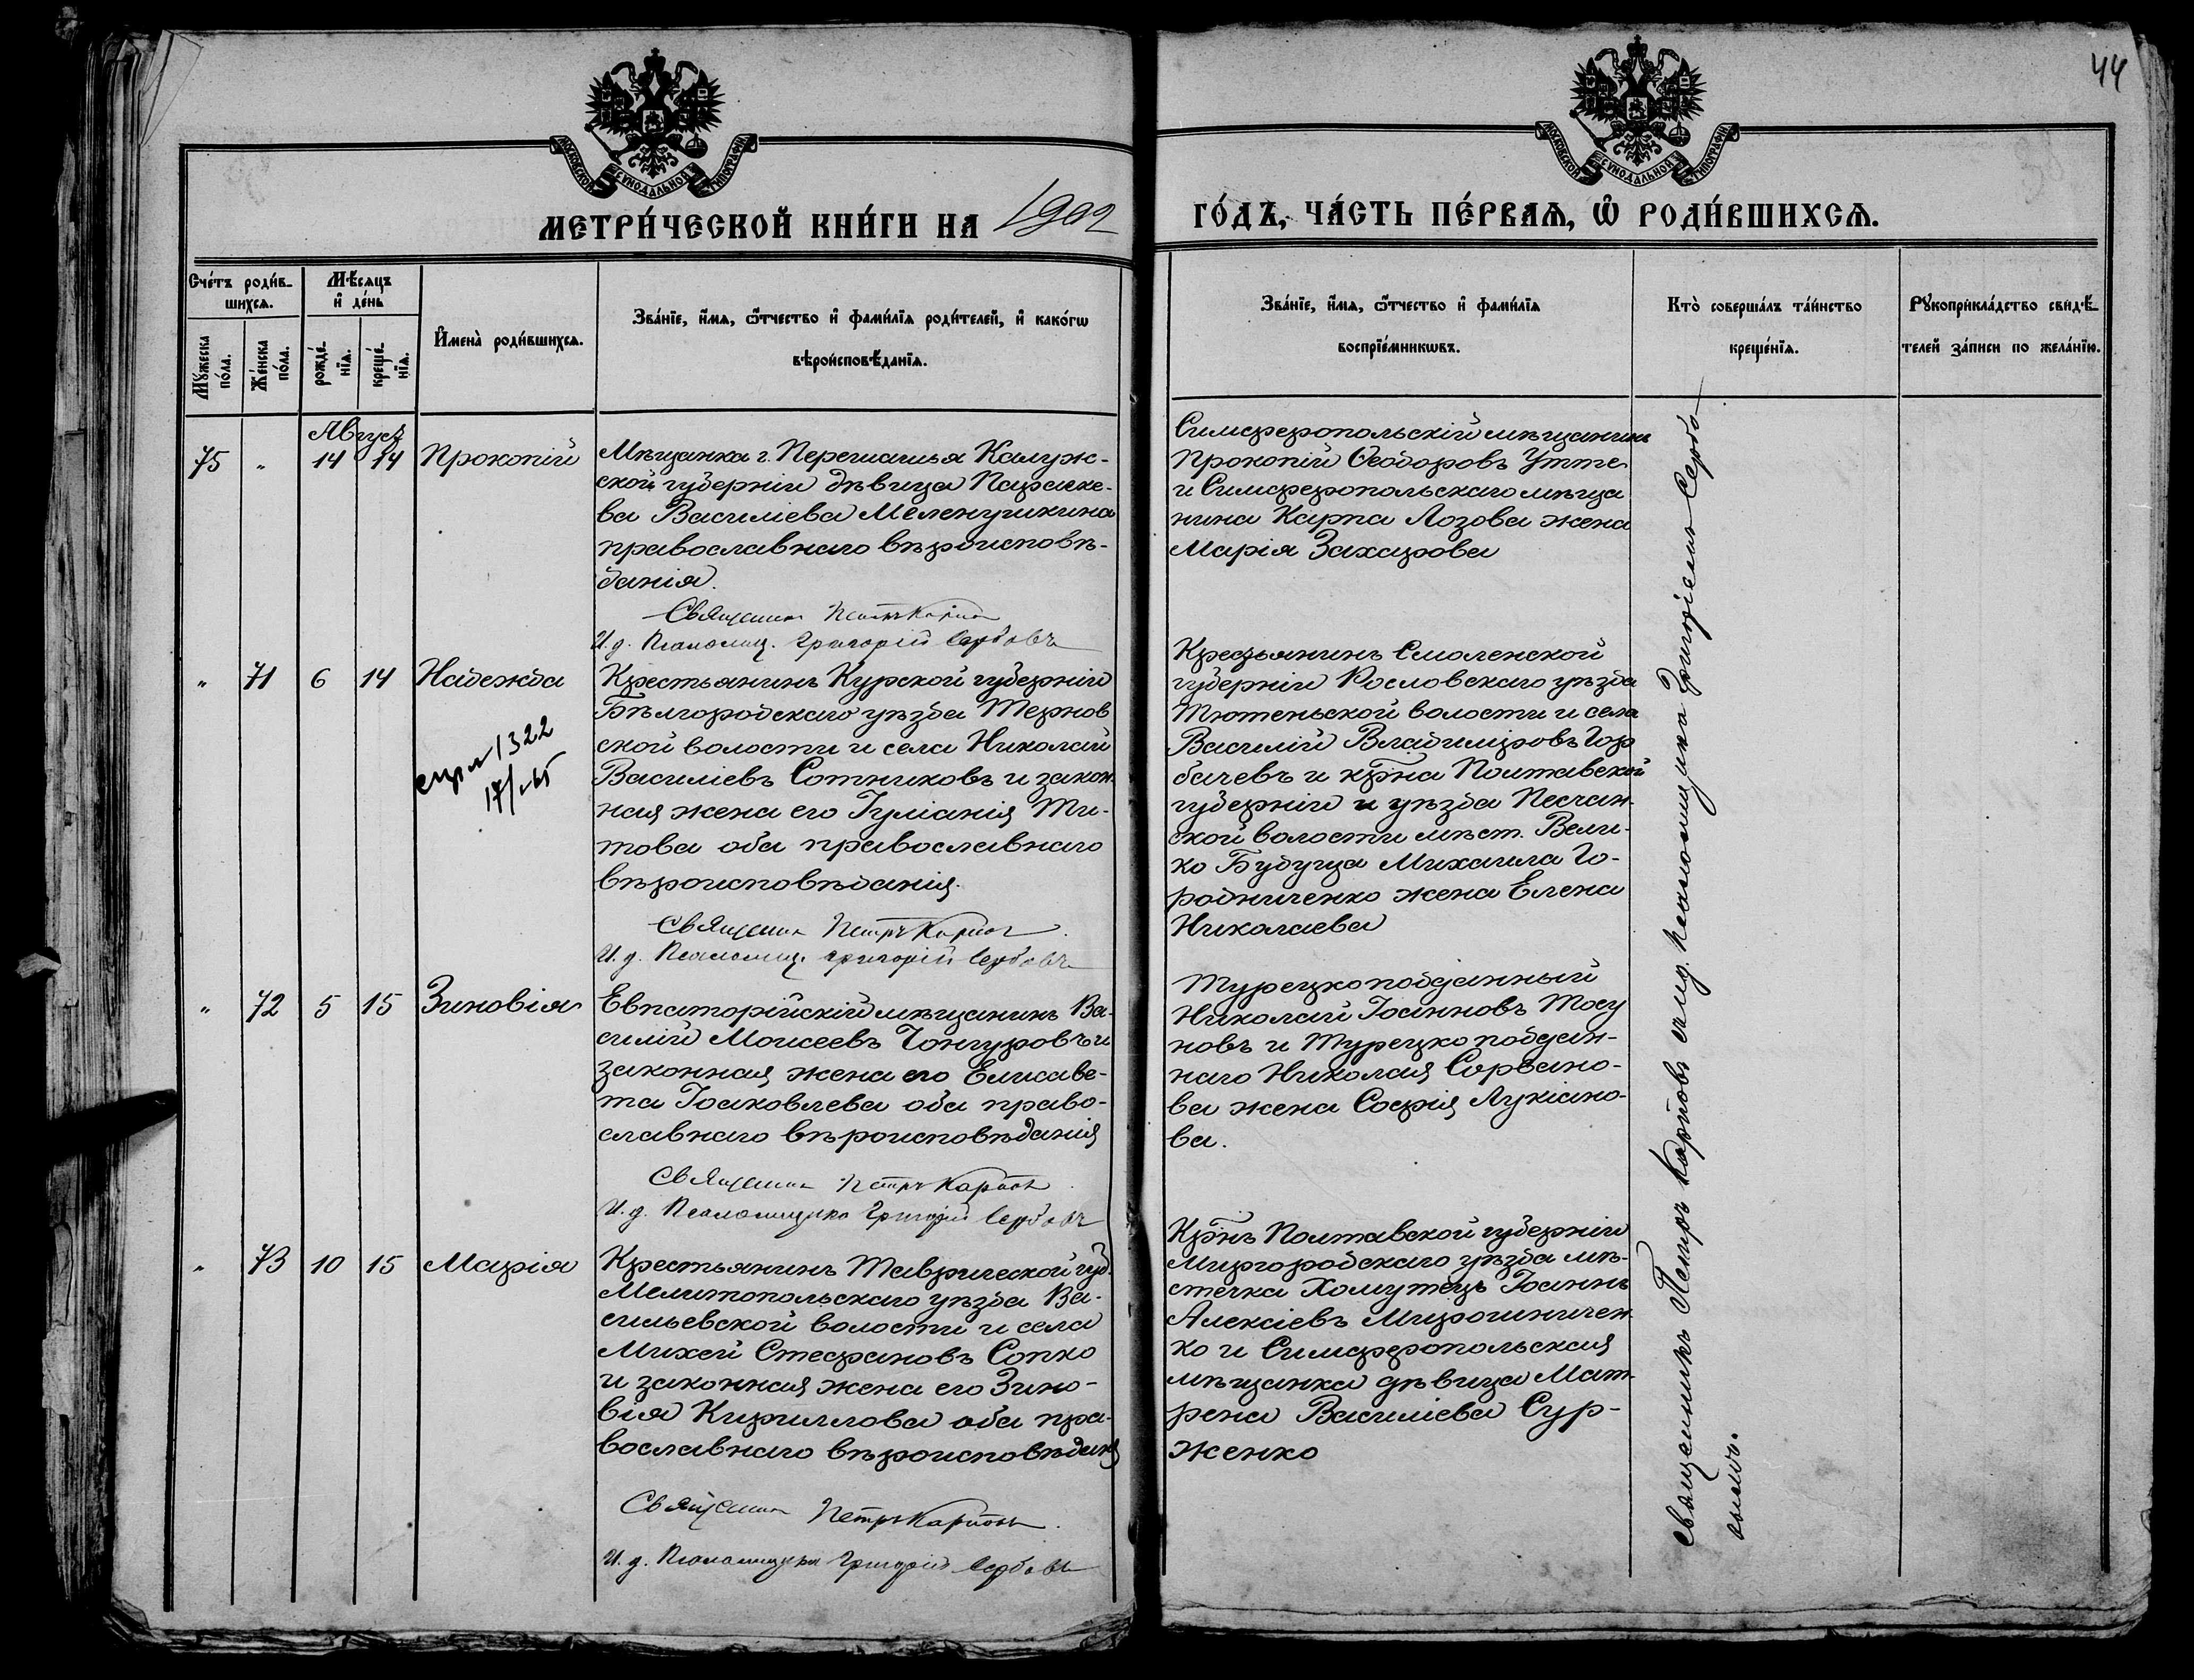 44
МОСКОВСКОЙ СѴНОДАЛЬНОЙ ТИПОГРАФІИ
МОСКОВСКОЙ СѴНОДАЛЬНОЙ ТИПОГРАФІИ
МЕТРИ́ЧЕСКОЙ КНИ́ГИ НА 1902
ГО́ДЪ, ЧА́СТЬ ПЕ́РВАѦ, Ѽ РОДИ́ВШИХСѦ.
Сче́тъ роди́в-
шихсѧ.
Мꙋ́жеска по́ла.
Же́нска по́ла.
Мѣ́сѧцъ
и҆ де́нь
рожде́-
нїѧ.
креще́-
нїѧ.
И҆мена̀ роди́вшихсѧ.
Зва́нїе, и҆́мѧ, ѻ҆́тчество и҆ фами́лїѧ роди́телей, и҆ како́гѡ
вѣроисповѣ́данїѧ.
Зва́нїе, и҆́мѧ, ѻ҆́тчество и҆ фами́лїѧ
воспрїе́мникѡвъ.
Кто̀ соверша́лъ та́инство
креще́нїѧ.
Рꙋкоприкла́дство свидѣ́-
телей за́писи по жела́нїю.
Августъ
75 " 14 14 Прокопій
Мѣщанка г. Перемышля Калуж-
ской губерніи дѣвица Параске-
ва Василиева Меленушкина
православнаго вѣроисповѣ-
данія.
Священникъ Петръ Карпов
И. д. Псаломщ. Григорій Сербовъ
Симферопольскій мѣщанинъ
Прокопій Ѳеодоровъ Утте
и Симферопольскаго мѣща
нина Карпа Лозова жена
Марія Захарова
" 71 6 14 Надежда
1322
17/
Крестьянинъ Курской губерніи
Бѣлгородскаго уѣзда Тернов
ской волости и села Николай
Василіевъ Сотниковъ и закон
ная жена его Іуліанія Ти-
това оба православнаго
вѣроисповѣданія.
Священник Петръ Карпов
И. д. Псаломщ. Григорій Сербовъ
Крестьянинъ Смоленской
губерніи Рославскаго уѣзда
Тютеньской волости и села
Василій Владиміровъ Гор
бачевъ и крн̃а Полтавской
губерніи и уѣзда Песчан-
ской волости мѣст. Вели-
ко Будуща Михаила Го-
родниченко жена Елена
Николаева
" 72 5 15 Зиновія
Евпаторійскій мѣщанинъ Ва-
силій Моисеевъ Гонгуровъ и
законная жена его Елисаве-
та Іоаковлева оба право-
славнаго вѣроисповѣданія
Священник Петръ Карповъ
И. д. Псаломщика Григорій Сербовъ
Турецкоподданный
Николай Іоанновъ Тосу
новъ и Турецко поддан-
наго Николая Сорвано-
ва жена Софія Лукіано-
ва.
" 73 10 15 Марія
Крестьянинъ Таврической губ.
Мелитопольскаго уѣзда Ва-
сильевской волости и села
Михей Стефановъ Сопко
и законная жена его Зино-
вія Кириллова оба пра-
вославнаго вѣроисповѣданія
Священник Петръ Карповъ.
И. д. Псаломщика Григорій Сербовъ
Крн̃ъ Полтавской губерніи
Миргородскаго уѣзда мѣ-
стечка Хомутецъ Іоаннъ
Алексіевъ Мирошничен
ко и Симферопольская
мѣщанка дѣвица Мат-
рена Василіева Сур-
женко
Священникъ Петръ Карповъ съ и.д. Псаломщика Григоріемъ Сербо-
вымъ.